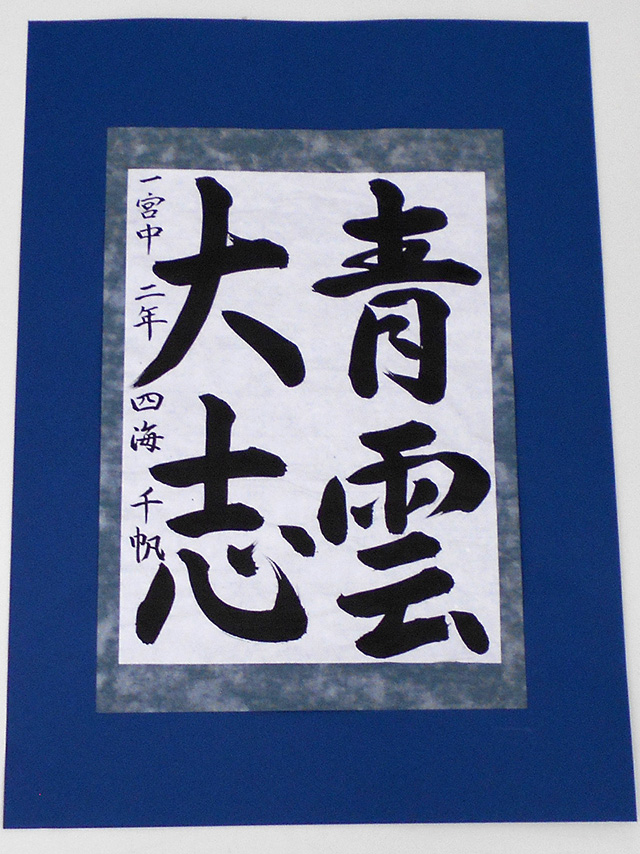 青雲
大志
一宮中 二年 四海 千帆